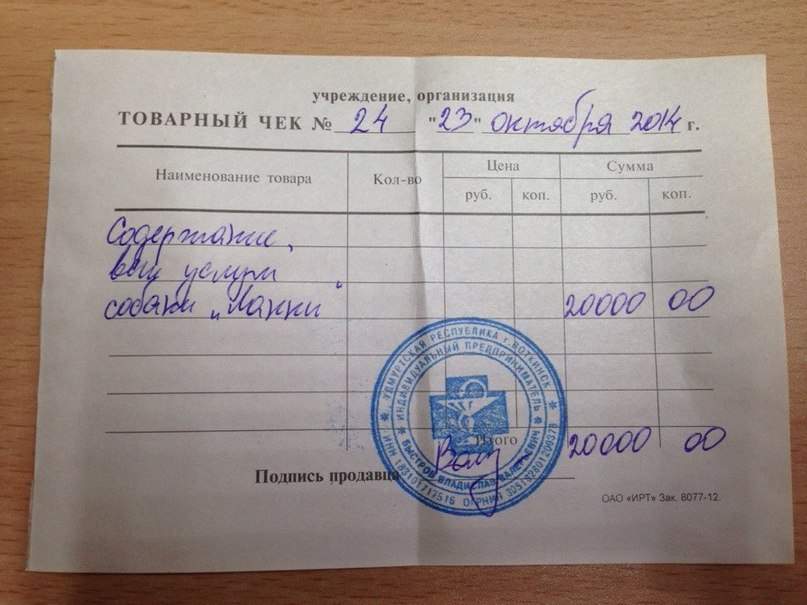 учреждение, организация
ТОВАРНЫЙ ЧЕК № 24 "23" октября 2014 г.
Наименование товара Кол-во Цена Сумма
руб. коп. руб. коп.
Содержание,
вет услуги
собаки „Лакки" 20000 00
УДМУРТСКАЯ РЕСПУБЛИКА г. ВОТКИНСК
ИНДИВИДУАЛЬНЫЙ ПРЕДПРИНИМАТЕЛЬ
БЫСТРОВ ВЛАДИСЛАВ ВАЛЕРЬЕВИЧ
ИНН ОГРНИП
Итого 20000 00
Подпись продавца
ОАО «ИРТ» Зак. 8077-12.